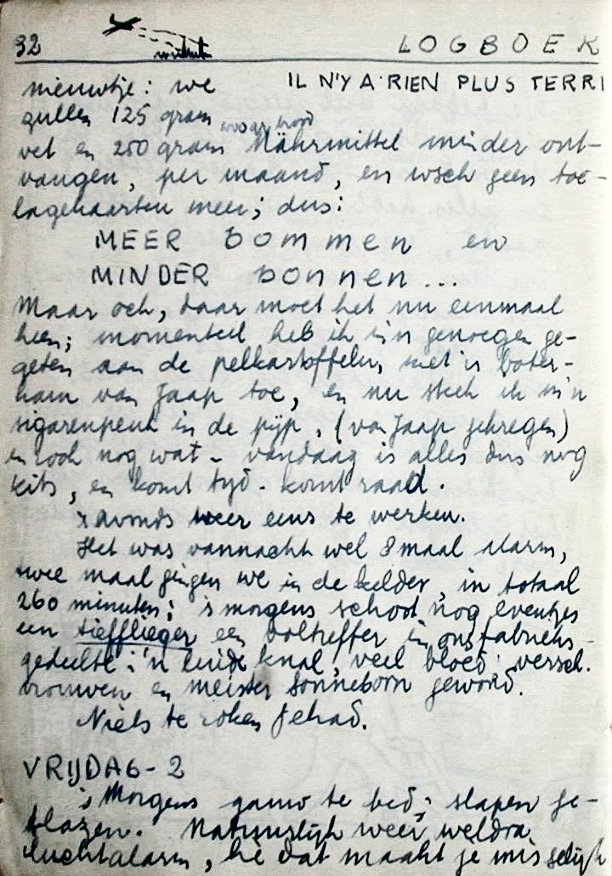 32
LOGBOEK
nieuwtje: we IL N'Y A RIEN PLUS TERRI
zullen 125 gram
vet en 250 gram Nährmittel minder ont-
vangen, per maand, en wsch geen toe-
lagekaarten meer; dus:
MEER bommen en
MINDER bonnen...
Maar och, daar moet het nu eenmaal
heen; momenteel heb ik m'n genoegen ge-
geten aan de pelkartoffeln, met 'n boter-
ham van Jaap toe, en nu steek ik m'n
sigarenpeuk in de pijp, (van Jaap gekregen)
en rook nog wat - vandaag is alles dus nog
kits, en komt tijd - komt raad.
's avonds weer eens te werken.
Het was vannacht wel 8 maal alarm,
twee maal gingen we in de kelder, in totaal
260 minuten; 's morgens schoot nog eventjes
een tiefflieger een voltreffer in ons fabrieks-
gedeelte: 'n luide knal, veel bloed: versch.
vrouwen en meister Sonneborn gewond.
Niets te roken gehad.
VRIJDAG - 2
's Morgens gauw te bed; slapen ge-
blazen. Natuurlijk weer weldra
luchtalarm, hè dat maakt je misselijk